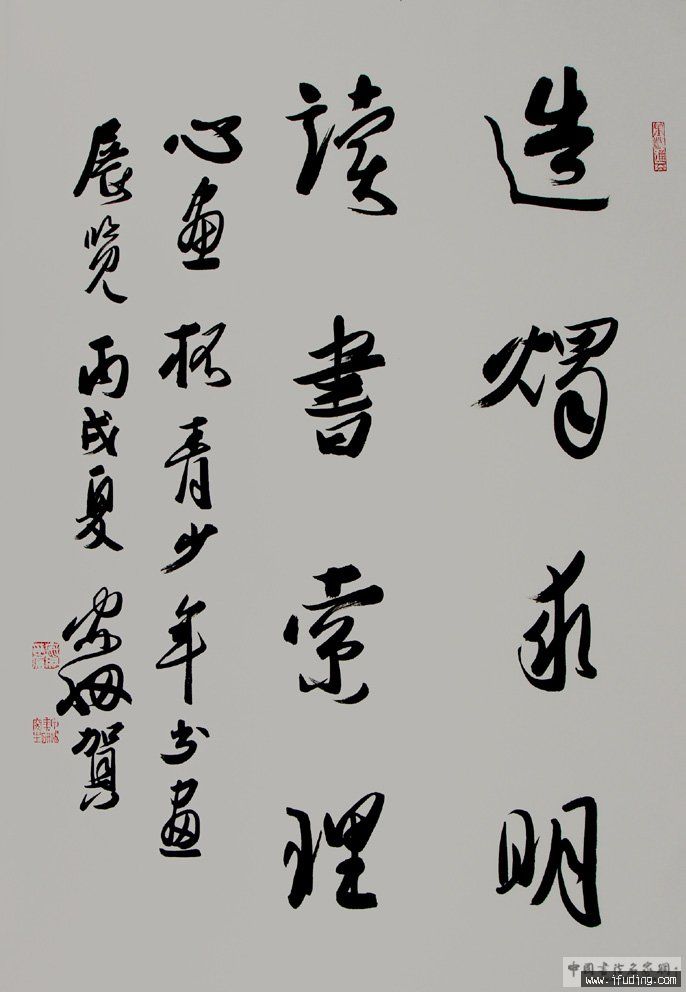 造烛求明
读書索理
心画杯青少年书画
展览丙戌夏
賀
中国书法名家网
www.ifuding.com